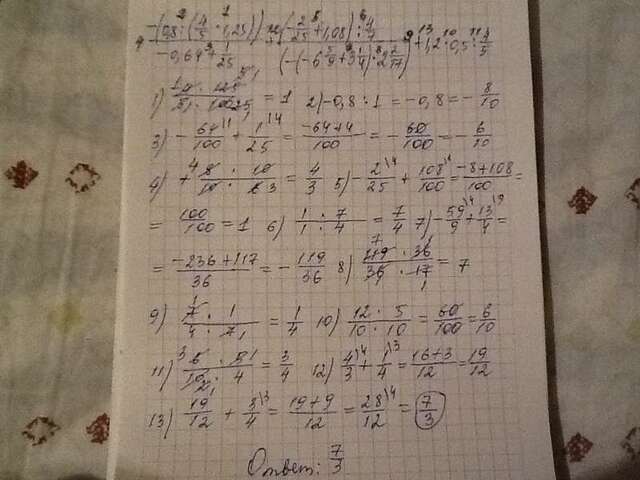 -(0,8 : (4/5 · 1,25)) + (-2/25 + 1,08) : 4/7 + 1,2 · 0,5 : 4/5
-0,64 + 1/25 (-(-6 5/9 + 3 1/4) · 2 2/17)
1) 4 · 125 / 5 · 100 = 1 2) -0,8 : 1 = -0,8 = -8/10
3) -64/100 + 1/25 = -64+4/100 = -60/100 = -6/10
4) + 8 · 10 / 10 · 6 = 4/3 5) -2/25 + 108/100 = -8+108/100 =
= 100/100 = 1 6) 1 · 7 / 1 · 4 = 7/4 7) -59/9 + 13/4 =
= -236+117/36 = -119/36 8) 119 · 36 / 36 · 17 = 7
9) 7 · 1 / 4 · 7 = 1/4 10) 12 · 5 / 10 · 10 = 60/100 = 6/10
11) 6 · 5 / 10 · 4 = 3/4 12) 4/3 + 1/4 = 16+3/12 = 19/12
13) 19/12 + 3/4 = 19+9/12 = 28/12 = 7/3
Ответ: 7/3